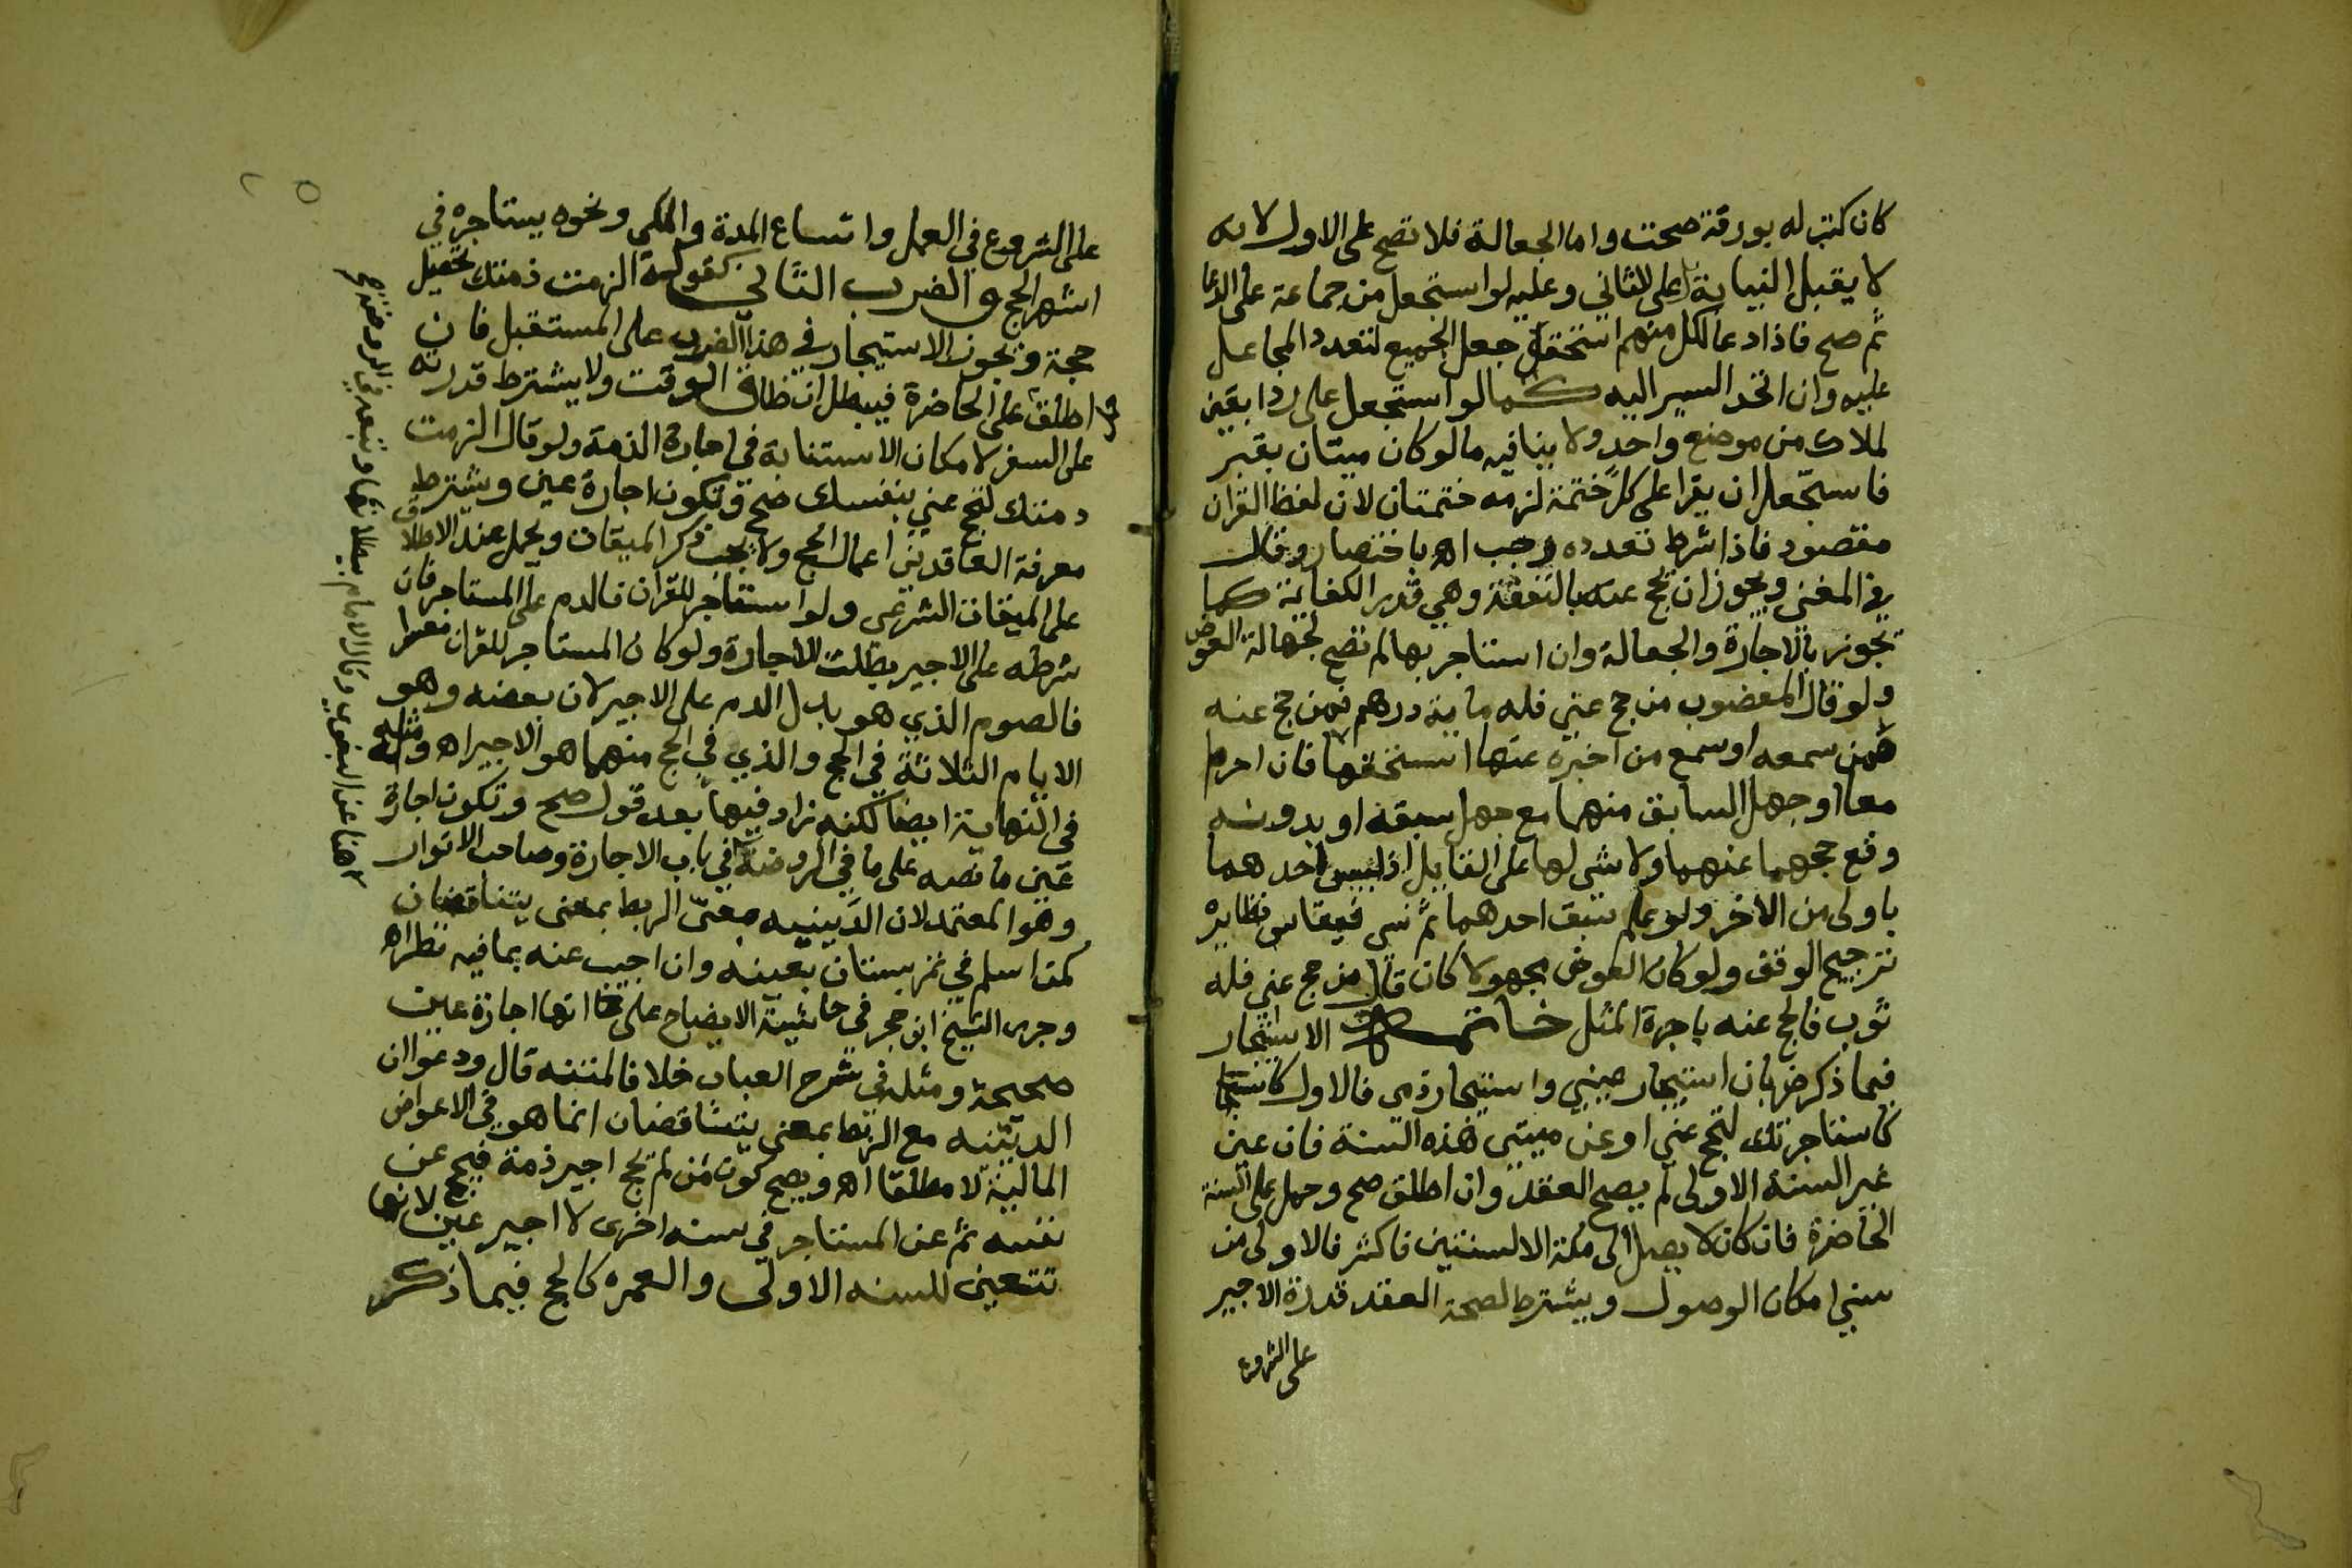 كان كتب له بورقة صحت واما الجعالة فلا تصح على الاول لانه
لا يقبل النيابة بل على الثاني وعليه لو استجعل من جماعة على الدعا
ثم صح فاذا دعا لكل منهم استحق جعل الجميع لتعدد المجاعل
عليه وان اتحد السير اليه كما لو استجعل على رد ابقين
لملاك من موضع واحد ولا ينافيه ما لو كان ميتان بقبر
فاستجعل ان يقرا على كل ختمة لزمه ختمتان لان لفظ القران
مقصود فاذا شرط تعدده وجب اه باختصار وقال
في المغني ويجوز ان يحج عنه بالنفقة وهي قدر الكفاية كما
تجوز بالاجارة والجعالة وان استاجر بها لم تصح لجهالة العوض
ولو قال المعضوب من حج عني فله ماية درهم فمن حج عنه
ممن سمعه او سمع من اخبره عنه استحقها فان احرم
معا او جهل السابق منهما مع جهل سبقه او بدونه
وقع حجهما عنهما ولا شي لهما على القايل اذ ليس احدهما
باولى من الاخر ولو علم سبق احدهما ثم نسي فقياس نظايره
ترجيح الوقف ولو كان العوض مجهولا كان قال من حج عني فله
ثوب فالحج عنه باجرة المثل خاتمة الاستيجار
فيما ذكر ضربان استيجار عيني واستيجار ذمي فالاول
كاستاجرتك لتحج عني او عن ميتي هذه السنة فان عين
غير السنة الاولى لم يصح العقد وان اطلق صح وحمل على السنة
الحاضرة فان كان لا يصل الى مكة الا لسنتين فاكثر فالاولى من
سني امكان الوصول ويشترط لصحة العقد قدرة الاجير
على الشروع
على الشروع في العمل واتساع المدة والمكي ونحوه يستاجره في
اشهر الحج والضرب الثاني كقوله الزمت ذمتك تحصيل
حجة ويجوز الاستيجار في هذا الضرب على المستقبل فان
اطلق على الحاضرة فيبطل ان ضاق الوقت ولا يشترط قدرته
على السفر لامكان الاستنابة في اجارة الذمة ولو قال الزمت
ذمتك لتحج عني بنفسك صح وتكون اجارة عين ويشترط
معرفة العاقدين اعمال الحج ولا يجب ذكر الميقات ويحمل عند الاطلاق
على الميقات الشرعي ولو استاجر للقران فالدم على المستاجر فان
شرطه على الاجير بطلت الاجارة ولو كان المستاجر للقران معسرا
فالصوم الذي هو بدل الدم على الاجير لان بعضه وهو
الايام الثلاثة في الحج والذي في الحج منهما هو الاجير اه ومثله
في النهاية ايضا لكنه زاد فيها بعد قول صح وتكون اجارة
عين ما نصه على ما في الروضة في باب الاجارة وصاحب الانوار
وهو المعتمد لان الدينيه مع الربط بمعنى يتناقضان
كمن اسلم في تمر بستان بعينه وان اجيب عنه بما فيه نظر اه
وجرى الشيخ ابن حجر في حاشية الايضاح على انها اجارة عين
صحيحة ومثله في شرح العباب خلافا لمتنه قال ودعوا ان
الدينيه مع الربط بمعنى يتناقضان انما هو في الاعواض
المالية لا مطلقا اه ويصح كون من لم يحج اجير ذمة فيحج عن
نفسه ثم عن المستاجر في سنة اخرى لا اجير عين لانها
تتعين للسنه الاولى والعمره كالحج فيما ذكر